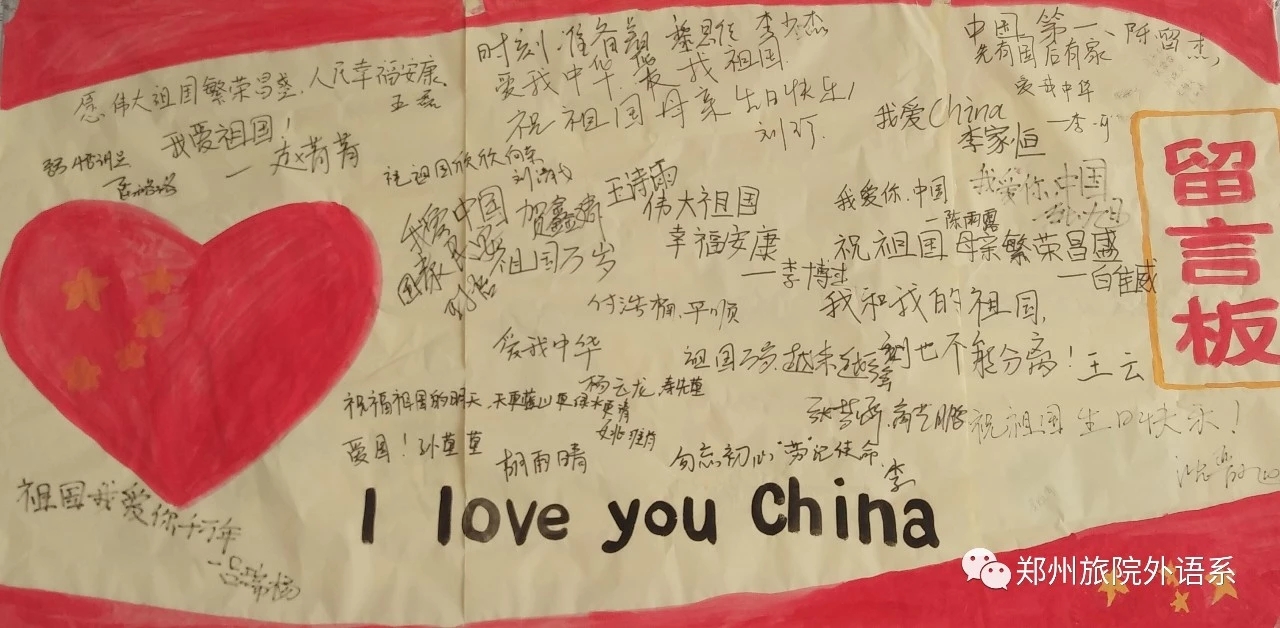 时刻准备着
李少杰
爱我中华
我祖国
祝祖国母亲生日快乐!
刘
中国第一
先有国后有家
爱我中华
愿伟大祖国繁荣昌盛,人民幸福安康
王磊
我爱祖国!
—赵菁菁
我爱China
李家恒
祝祖国欣欣向荣
王诗雨
我爱中国
祖国万岁
伟大祖国
幸福安康
—李博过
我爱你.中国
—陈雨露
我爱你.中国
祝祖国母亲繁荣昌盛
—白佳威
留言板
付浩楠.平顺
我和我的祖国,
一刻也不能分离!王云
爱我中华
祖国万岁.越来越强
杨云龙
祝福祖国的明天,天更蓝山更绿水更清
爱国!孙莹莹
胡雨晴
勿忘初心"劳"记使命
李
祝祖国生日快乐!
祖国我爱你千万年
—吕瑞杨
I love you China
郑州旅院外语系